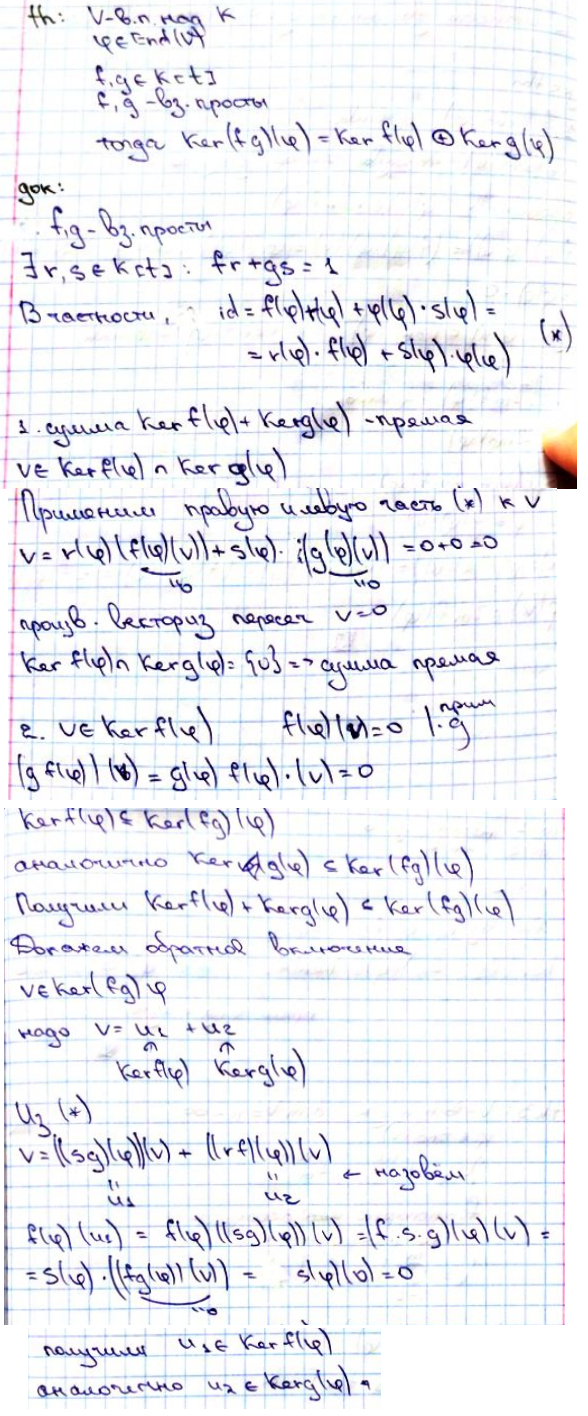 th: V-в.п. над K
φ∈End(V)
f,g∈K[t]
f,g-вз.просты
тогда Ker(fg)(φ)=Ker f(φ)⊕Ker g(φ)
док:
f,g-вз.просты
∃r,s∈K[t]: fr+gs=1
В частности, id=f(φ)r(φ)+φ(φ)·s(φ)=
=r(φ)·f(φ)+s(φ)·φ(φ) (*)
1. сумма Ker f(φ)+Ker g(φ) -прямая
v∈Ker f(φ)∩Ker g(φ)
Применим правую и левую часть (*) к v
v=r(φ)(f(φ)(v))+s(φ)·(g(φ)(v))=0+0=0
"0 "0
произв. вектор из пересеч v=0
Ker f(φ)∩Ker g(φ)={0}=>сумма прямая
2. v∈Ker f(φ) f(φ)(v)=0 |·g прим
(g f(φ))(v)=g(φ) f(φ)·(v)=0
Ker f(φ)≤Ker(fg)(φ)
аналочично Ker g(φ)≤Ker(fg)(φ)
Получили Ker f(φ)+Ker g(φ)≤Ker(fg)(φ)
Докажем обратное включение
v∈Ker(fg)φ
надо v=u₁+u₂
Ker f(φ) Ker g(φ)
Из (*)
v=((sg)(φ))(v)+((rf)(φ))(v)
u₁ u₂ ← назовём
f(φ)(u₁)=f(φ)((sg)(φ))(v)=(f·s·g)(φ)(v)=
=s(φ)·((fg(φ))(v))= s(φ)(0)=0
"0
получили u₁∈Ker f(φ)
аналогично u₂∈Ker g(φ)